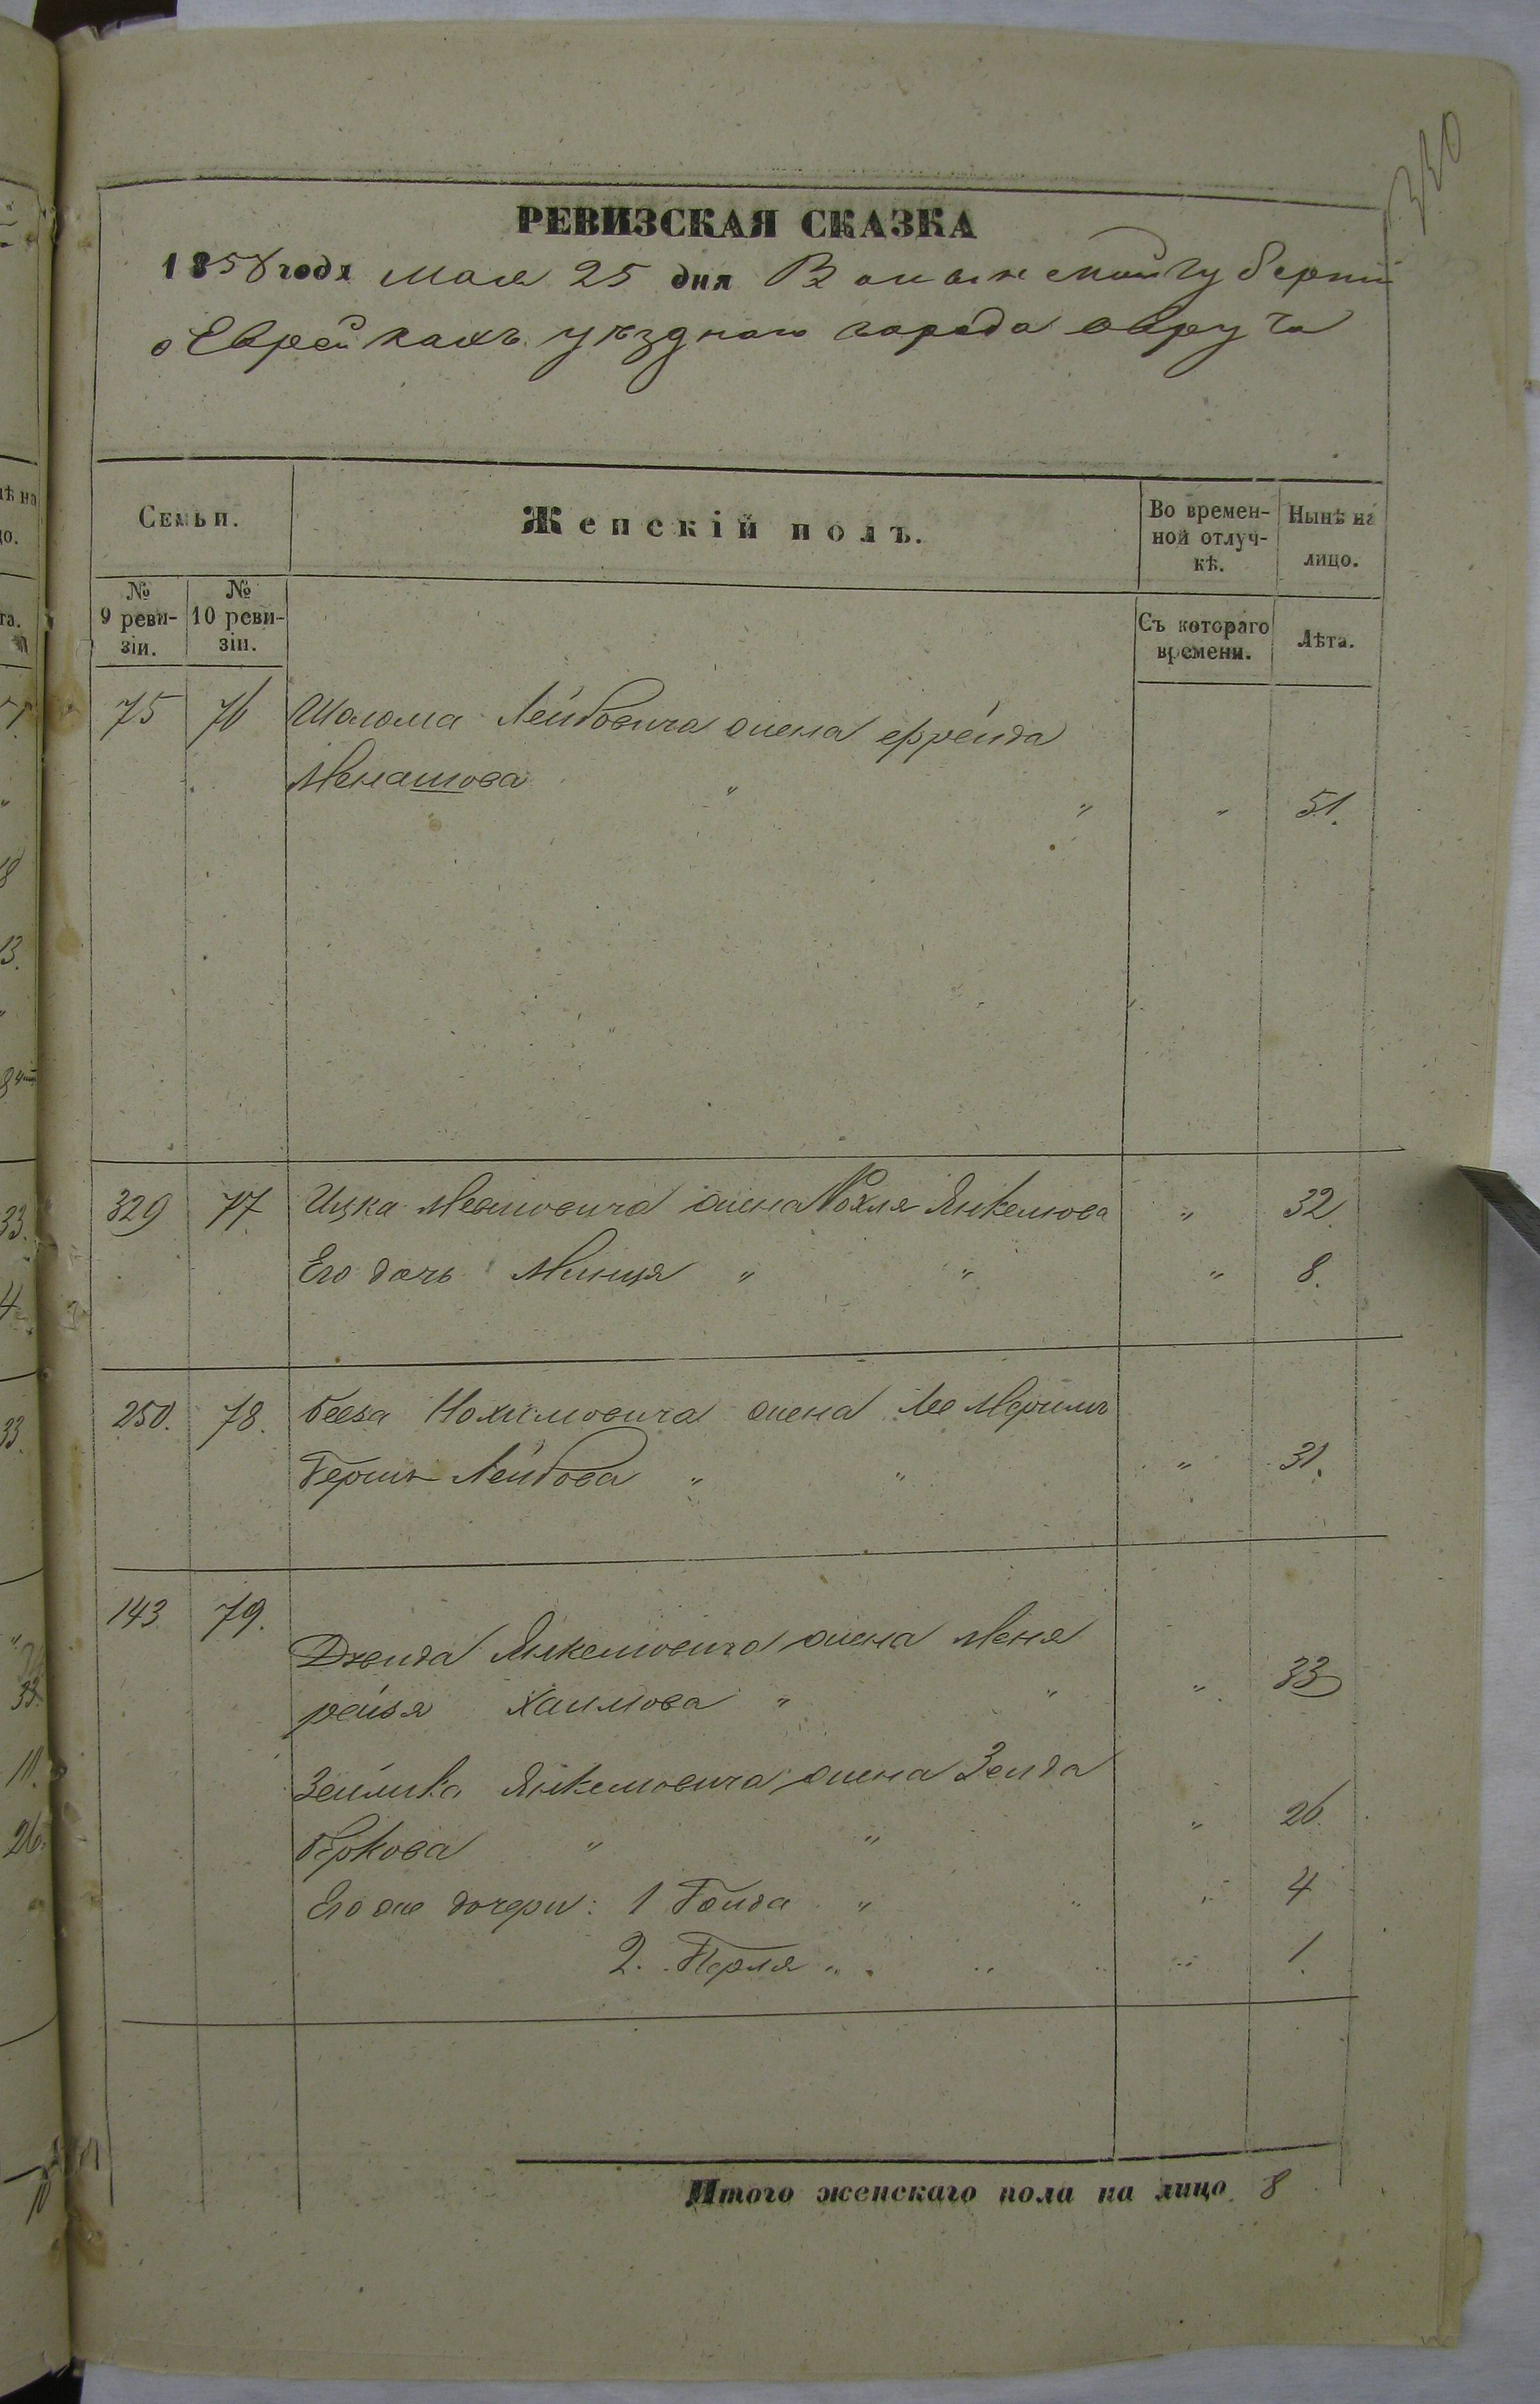 РЕВИЗСКАЯ СКАЗКА
1858 года мая 25 дня Волынской губерніи
о Еврейкахъ уѣзднаго города Овруча
Семьи.
Женскій полъ.
Во времен-
ной отлуч-
кѣ.
Нынѣ на
лицо.
№
9 реви-
зіи.
№
10 реви-
зіи.
Съ котораго
времени.
Лѣта.
75 76 Шолома Лейбовича жена Фрейда
Менашова " " " 51.
329 77 Ицка жена Рохля Янкелюва " 32
Его дочь Минця " " " 8.
250. 78. Нохимовича жена
Лейбова " " " 31.
143 79.
Янкелювича жена Меня
рейзя Хаимова " " " 33
Зейлика Янкелювича жена Зелда
Беркова " " " 26.
Его же дочери: 1 Голда " " " 4
2. Перля " " " 1.
Итого женскаго пола на лицо 8